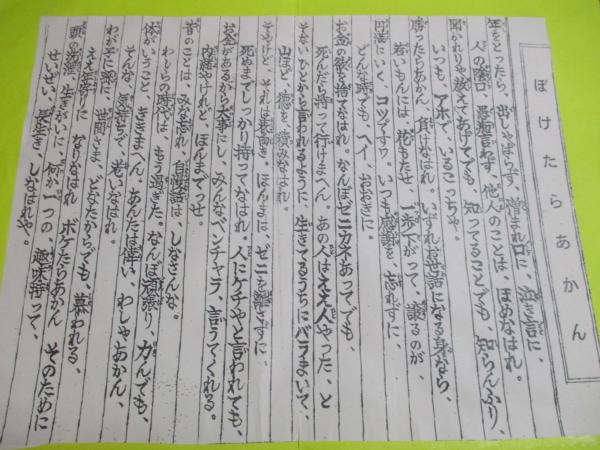 ぼけたらあかん
年をとったら、出しゃばらず、憎まれ口に、泣き言に、
人の陰口、愚痴言わず、他人のことは、ほめなはれ。
聞かれりゃ教えてあげてでも、知ってることでも、知らんふり、
いつも、アホで、いるこっちゃ。
勝ったらあかん、負けなはれ。いずれお世話になる身なら、
若いもんには、花もたせ、一歩下がって、譲るのが、
円満にいく、コツですワ。いつも感謝を、忘れずに、
どんな時でも、ヘイ、おおきに。
お金の欲を捨てなはれ。なんぼゼニカネあってでも、
死んだら持って行けまへん。あの人はええ人やった、と
そないひとから言われるように、生きてるうちにバラまいて、
山ほど、徳を、積みなはれ。
そやけど、それは表向き、ほんまは、ゼニを離さずに、
死ぬまでしっかり持ってなはれ。人にケチやと言われても、
お金があるから大事にし、みんなベンチャラ、言うてくれる。
内緒やけれど、ほんまでっせ。
昔のことは、みな忘れ、自慢話は、しなさんな。
わしらの時代は、もう過ぎた。なんぼ頑張り、力んでも、
体がいうこと、ききまへん。あんたは偉い、わしゃあかん、
そんな気持ちで、老いなはれ。
わが子に孫に、世間さま、どなたからでも、慕われる、
ええ年寄りに、なりなはれ ボケたらあかん そのために
頭の洗濯、生きがいに、何か一つの、趣味持って、
せいぜい、長生き、しなはれや。